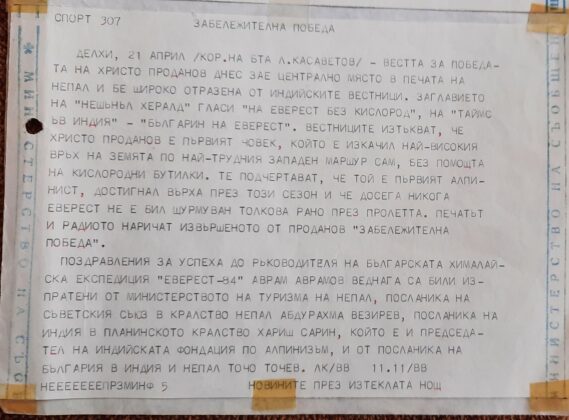 СПОРТ 307
ЗАБЕЛЕЖИТЕЛНА ПОБЕДА
ДЕЛХИ, 21 АПРИЛ /КОР.НА БТА Л.КАСАВЕТОВ/ - ВЕСТТА ЗА ПОБЕДА-
ТА НА ХРИСТО ПРОДАНОВ ДНЕС ЗАЕ ЦЕНТРАЛНО МЯСТО В ПЕЧАТА НА
НЕПАЛ И БЕ ШИРОКО ОТРАЗЕНА ОТ ИНДИЙСКИТЕ ВЕСТНИЦИ. ЗАГЛАВИЕТО
НА "НЕШЬНЬЛ ХЕРАЛД" ГЛАСИ "НА ЕВЕРЕСТ БЕЗ КИСЛОРОД", НА "ТАЙМС
ЬВ ИНДИЯ" - "БЬЛГАРИН НА ЕВЕРЕСТ". ВЕСТНИЦИТЕ ИЗТЬКВАТ, ЧЕ
ХРИСТО ПРОДАНОВ Е ПЬРВИЯТ ЧОВЕК, КОЙТО Е ИЗКАЧИЛ НАЙ-ВИСОКИЯ
ВРЬХ НА ЗЕМЯТА ПО НАЙ-ТРУДНИЯ ЗАПАДЕН МАРШУР САМ, БЕЗ ПОМОЩТА
НА КИСЛОРОДНИ БУТИЛКИ. ТЕ ПОДЧЕРТАВАТ, ЧЕ ТОЙ Е ПЬРВИЯТ АЛПИ-
НИСТ, ДОСТИГНАЛ ВЬРХА ПРЕЗ ТОЗИ СЕЗОН И ЧЕ ДОСЕГА НИКОГА
ЕВЕРЕСТ НЕ Е БИЛ ЩУРМУВАН ТОЛКОВА РАНО ПРЕЗ ПРОЛЕТТА. ПЕЧАТЬТ
И РАДИОТО НАРИЧАТ ИЗВЬРШЕНОТО ОТ ПРОДАНОВ "ЗАБЕЛЕЖИТЕЛНА
ПОБЕДА".
ПОЗДРАВЛЕНИЯ ЗА УСПЕХА ДО РЬКОВОДИТЕЛЯ НА БЬЛГАРСКАТА ХИМАЛАЙ-
СКА ЕКСПЕДИЦИЯ "ЕВЕРЕСТ-84" АВРАМ АВРАМОВ ВЕДНАГА СА БИЛИ ИЗ-
ПРАТЕНИ ОТ МИНИСТЕРСТВОТО НА ТУРИЗМА НА НЕПАЛ, ПОСЛАНИКА НА
СЬВЕТСКИЯ СЬЮЗ В КРАЛСТВО НЕПАЛ АБДУРАХМА ВЕЗИРЕВ, ПОСЛАНИКА НА
ИНДИЯ В ПЛАНИНСКОТО КРАЛСТВО ХАРИШ САРИН, КОЙТО Е И ПРЕДСЕДА-
ТЕЛ НА ИНДИЙСКАТА ФОНДАЦИЯ ПО АЛПИНИЗЬМ, И ОТ ПОСЛАНИКА НА
БЬЛГАРИЯ В ИНДИЯ И НЕПАЛ ТОЧО ТОЧЕВ. ЛК/ВВ 11.11/ВВ
НЕЕЕЕЕЕЕПРЗМИНФ 5 НОВИНИТЕ ПРЕЗ ИЗТЕКЛАТА НОЩ
* МИНИСТЕРСТВО НА СЪО
МИНИСТЕРСТВО НА СЪОБЩЕН